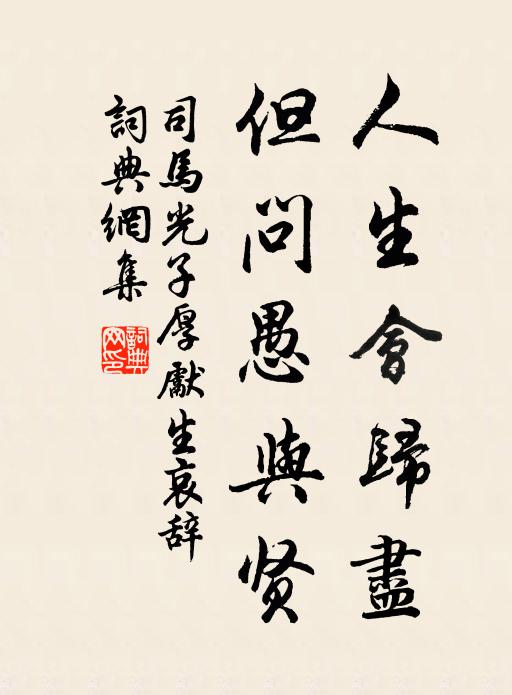 人生會歸盡
但问愚與贤
司馬光子厚獻生哀辞
詞典網集
詞典网印